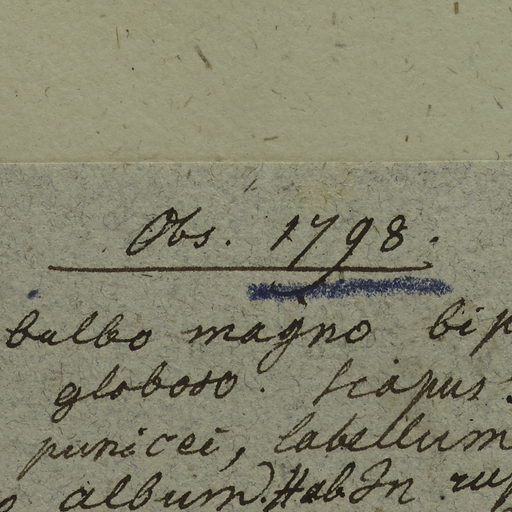 Obs. 1798.
bulbo magno bip
globoso. Scapus
punicei, labellum
album). Hab. In rup